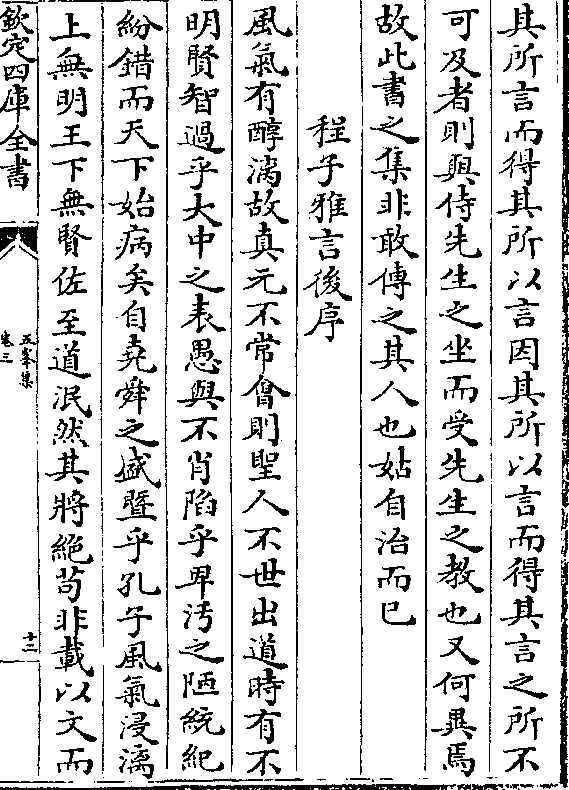 其所言而得其所以言因其所以言而得其言之所不
可及者則與侍先生之坐而受先生之教也又何異焉
故此書之集非敢傳之其人也姑自治而已
程子雅言後序
風氣有醇漓故真元不常會則聖人不世出道時有不
明賢智過乎大中之表愚與不肖陷乎卑汚之陋統紀
紛錯而天下始病矣自堯舜之盛暨乎孔子風氣浸漓
上無明王下無賢佐至道泯然其將絶苟非載以文而
欽定四庫全書
五峯集
卷三
十二